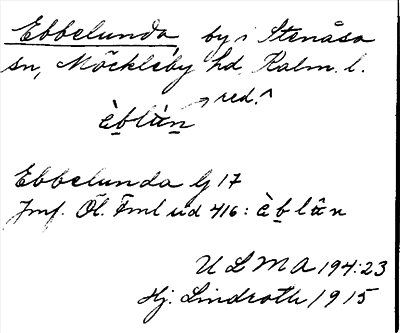 Ebbelunda by i Stenåsa
sn, Möckleby hd Kalm. l.
red.^
èb̲lùn̲
Ebbelunda G 17
Jmf. Öl. Fml ud 416: èb̲lûn
ULMA 194:23
Hj. Lindroth 1915